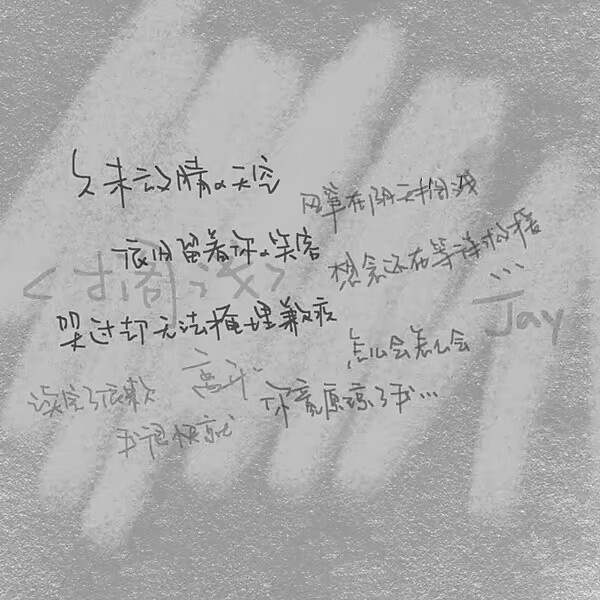 久未放晴的天空
依旧留着你的笑容
哭过却无法掩埋歉疚
风筝在阴天搁浅
想念还在等待救援
<搁浅>
...
—Jay
怎么会怎么会
你竟原谅了我...
读完了依赖
我很快就
离开